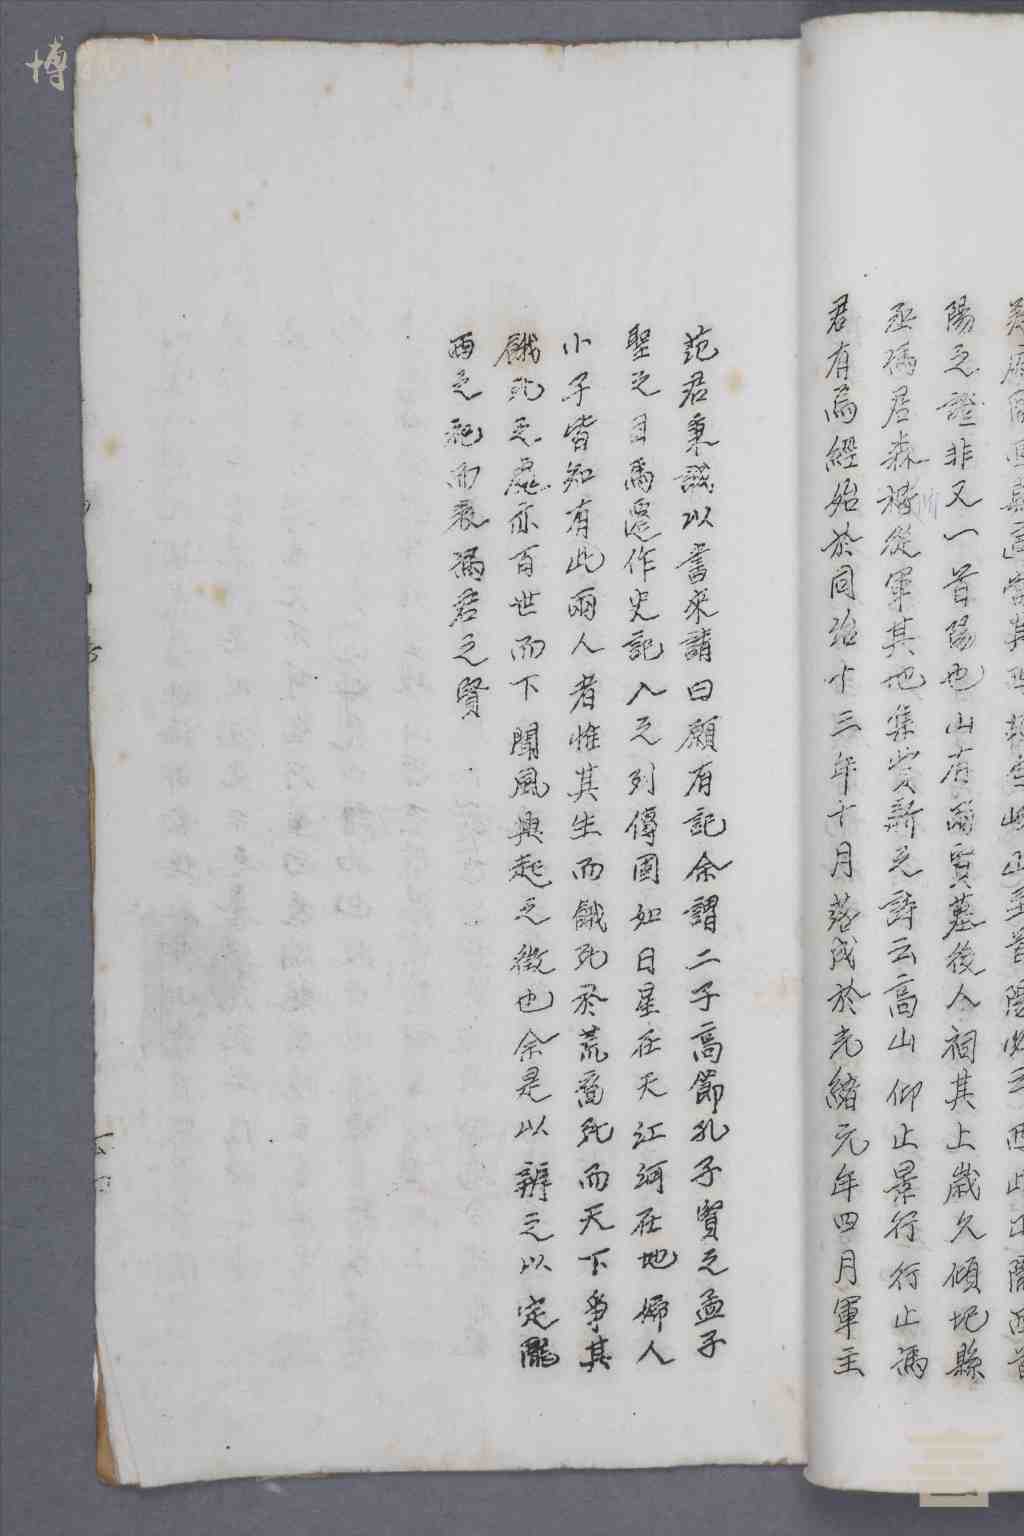 陽之證非又一首陽也山有兩賢墓後人祠其上歲久傾圮縣
丞馮君森楷從軍其地集貲新之詩云高山仰止景行行止馮
君有焉經始於同治十三年十月落成於光緒元年四月軍主
范君秉誠以書來請曰願有記余謂二子高節孔子賢之孟子
聖之目馬遷作史記入之列傳固如日星在天江河在地婦人
小子皆知有此兩人者惟其生而餓死於荒裔死而天下爭其
餓死之處亦百世而下聞風興起之徵也余是以辨之以定隴
西之祀而表馮君之賢
博